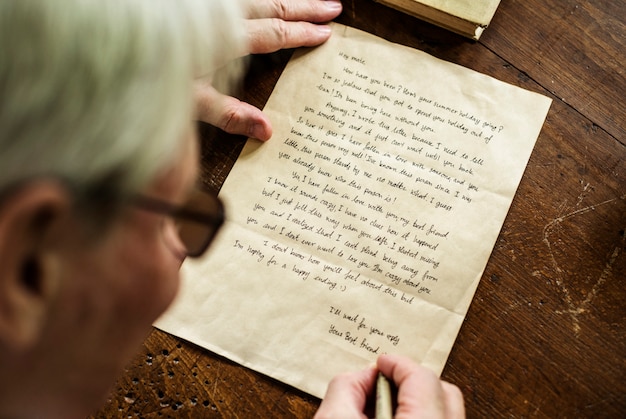 Hey mate,
How have you been? How's your summer holiday going?
I'm so jealous that you got to spend your holiday out of
town! It's been boring here without you.
Anyway, I wrote this letter because I need to tell
you something and it just can't wait until you back.
So here it goes I have fallen in love with someone and you
know this person very well! I've known this person since I was
little, this person stands by me no matter what. I guess
you already know who this person is!
Yes I have fallen in love with you, my best friend
I know it sounds crazy, I have no clue how it happened
but I just felt this way when you left. I started missing
you and I realised that I can't stand being away from
you and I don't ever want to lose you. I'm crazy about you
I don't know how you'll feel about this but
I'm hoping for a happy ending :)
I'll wait for your reply
Your Best friend